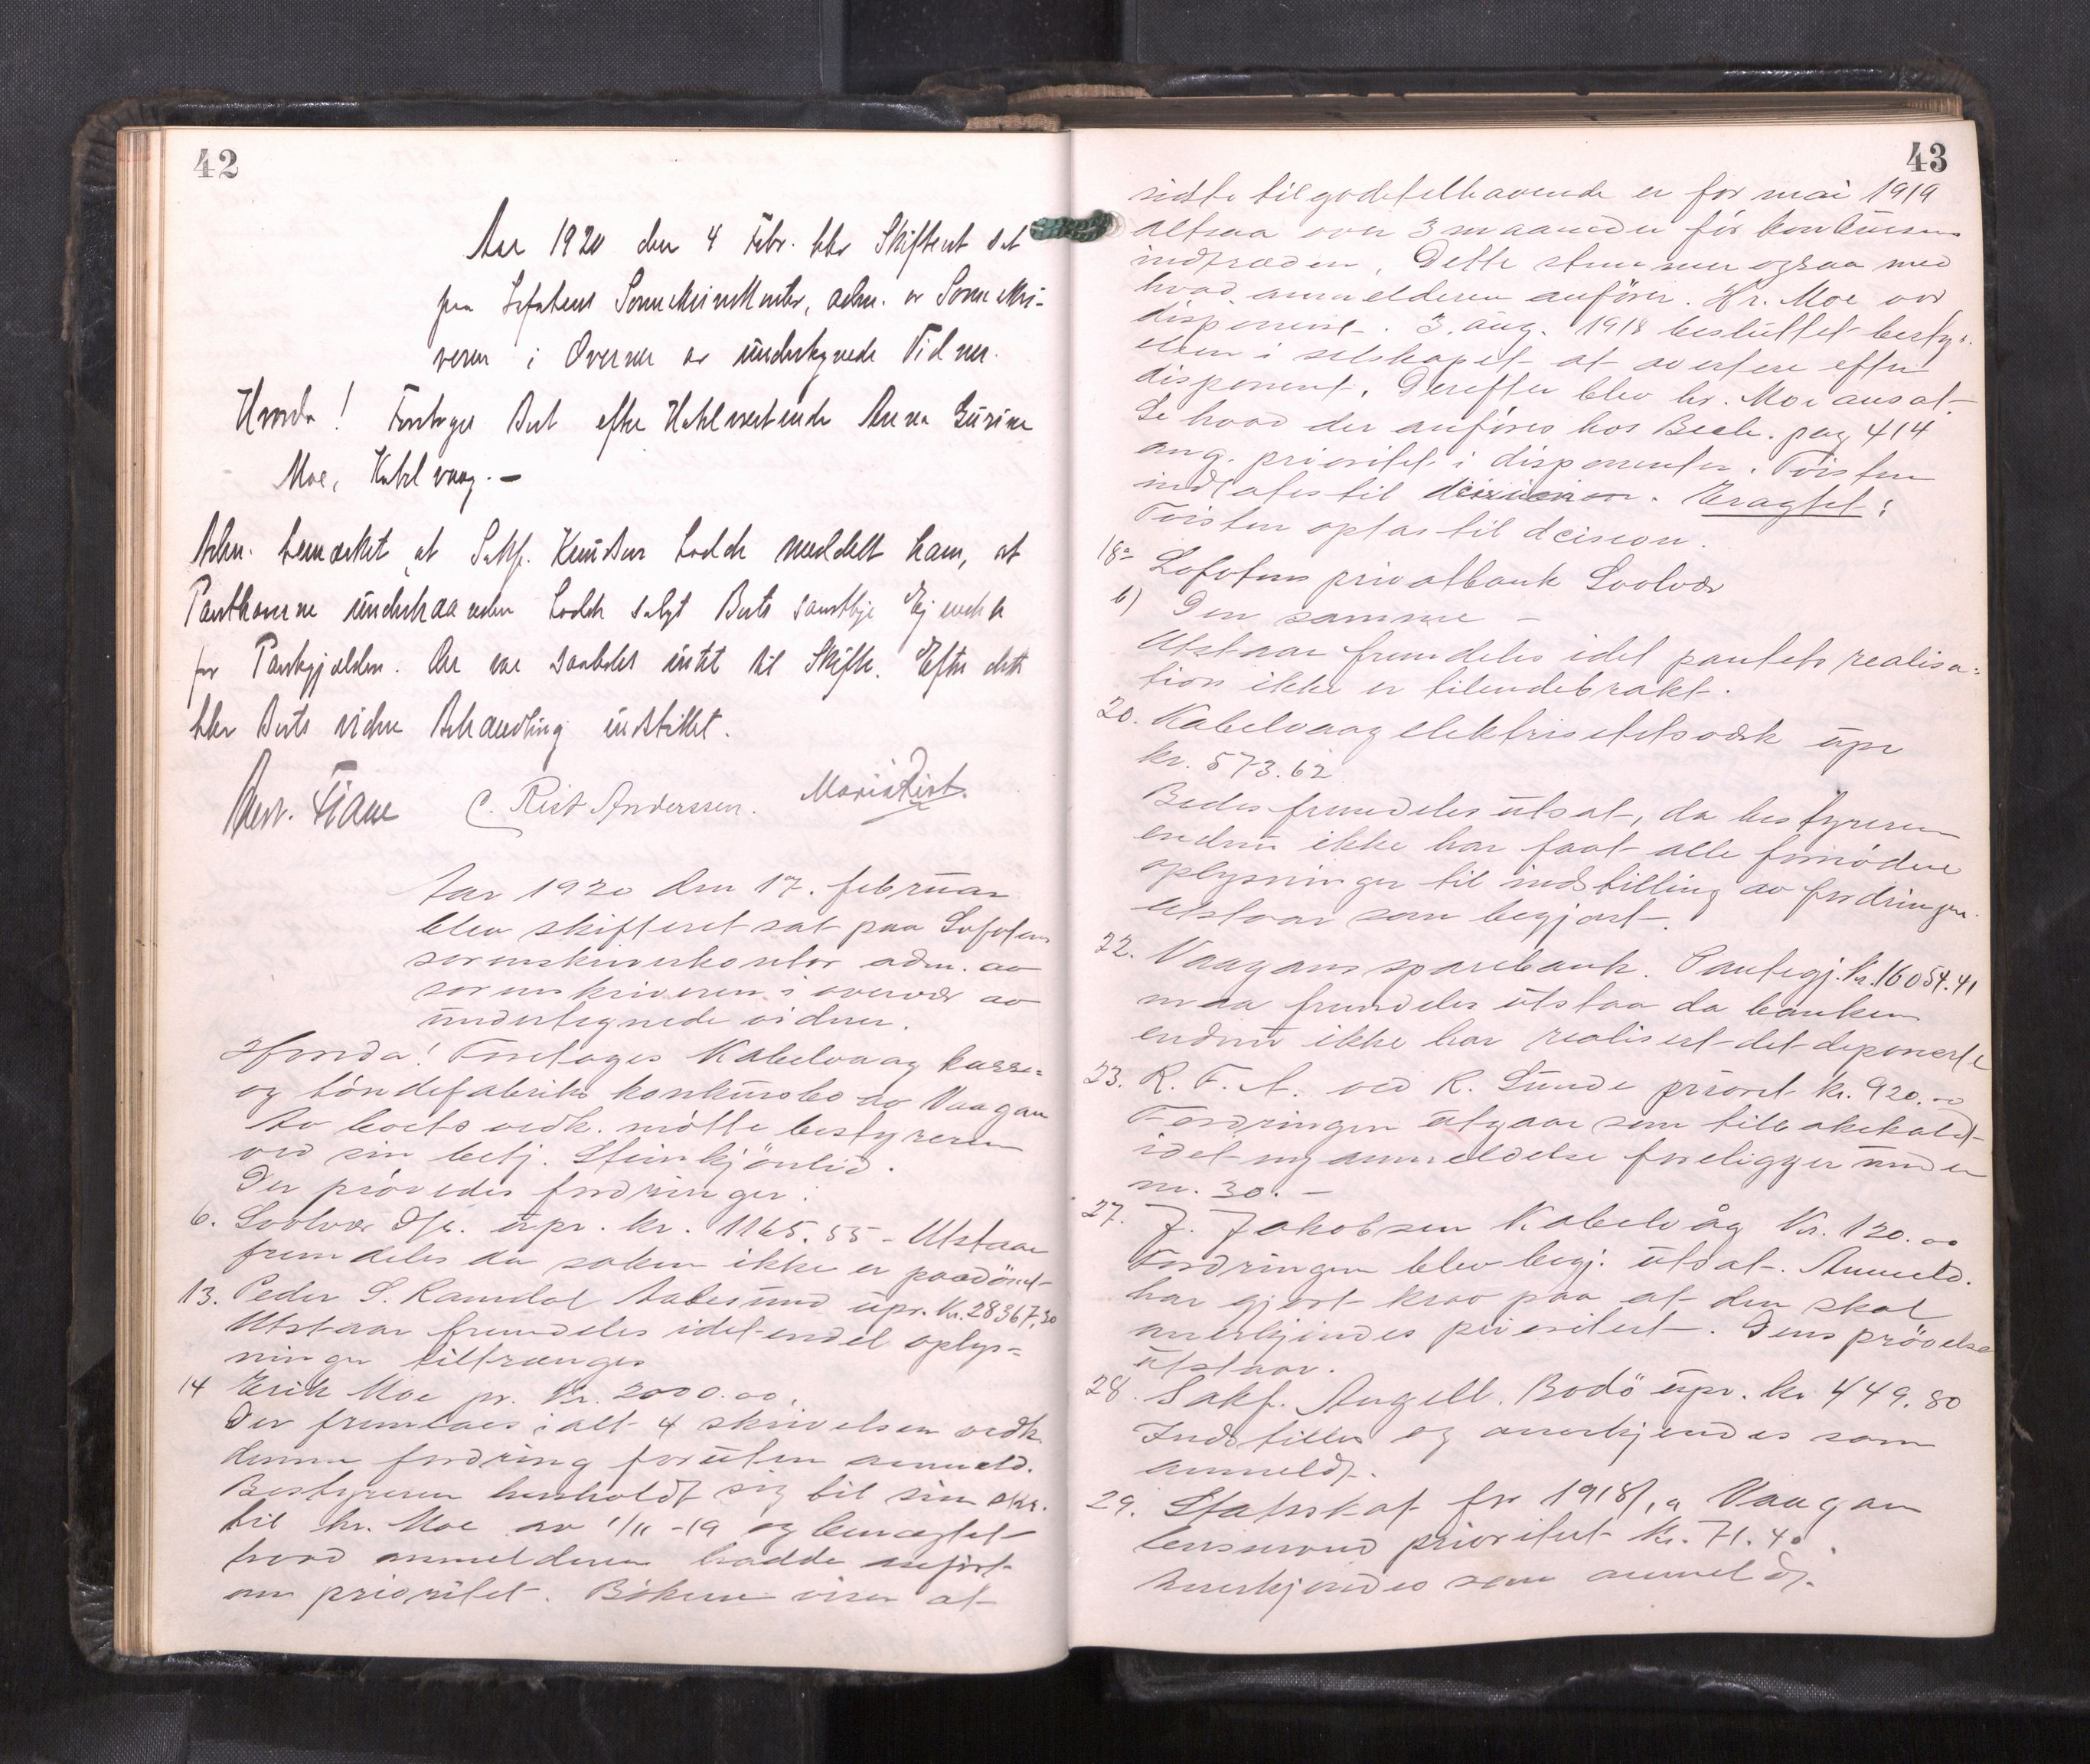 42
Aar 1920 den 4 Febr. blev Skifteret sat
paa Lofotens Sorenskriverkontor, adm. av Sorenskri-
veren i Overvær av undertegnede Vidner.
Hvorda! Foretoges Best efter Hotelværtinde Anna Gurine
Moe, Kabelvaag. —
Adm. bemærket, at Sakf. Knudsen hadde meddelt ham, at
Panthaverne underhaanden hadde solgt Boets samtlige Eiendele
for Pantegjælden. Der var saaledes intet til Skifte. Efter dette
blev Boets videre Behandling indstillet.
C. Rist Anderssen. Maria Rist.
Aar 1920 den 17. februar
blev skifteret sat paa Lofotens
sorenskriverkontor adm. av
sorenskriveren i overvær av
undertegnede vidner.
Hvorda! Foretoges Kabelvaag kasse=
og töndefabriks konkursbo av Vaagan
Av boets vedk. mötte bestyreren
ved sin betj. Steinkjönlid.
Der prövedes fordringer:
6. Svolvær D/s. upr. kr. 1165.55 - Utstaar
fremdeles da saken ikke er paadömt
13. Peder S. Ramdal Aalesund upr. Kr. 28367,30
Utstaar fremdeles idet endel oplys=
ninger tiltrænges
14 Erik Moe pr. Kr. 2000.00.
Der fremlaes i alt 4 skrivelser vedk.
denne fordring foruten anmeld.
Bestyreren henholdt sig til sin skr.
til hr. Moe av 1/11 -19 og benegtet
hvad anmelderen hadde anfört
om prioritet. Bökene viser at
43
sidste tilgodetelhavende er for mai 1919
altsaa over 3 maaneder för konkursens
indtræden. Dette stemmer ogsaa med
hvad anmelderen anförer. Hr. Moe var
disponent. 3. aug. 1918 besluttet besty-
elsen i selskapet at avertere efter
disponent. Derefter blev hr. Moe ansat.
Se hvad der anföres hos Beck. pag 414
ang. prioritet i disponenter. Tvisten
indlates til decision. Eragtet:
Tvisten optas til decision.
18a Lofotens privatbank Svolvær
b) Den samme -
Utstaar fremdeles idet pantets realisa=
tion ikke er tilendebrakt.
20. Kabelvaag elektrisitetsværk upr
kr. 573.62
Bedes fremdeles utsat, da bestyreren
endnu ikke har faat alle fornödne
oplysninger til indstilling av fordringen.
Utstaar som begjært.
22. Vaagans sparebank. Pantegj. Kr. 16054.41
maa fremdeles utstaa da banken
endnu ikke har realisert det deponerte
23. R. F. A. ved R. Sunde priorit kr. 920.00
Fordringen utgaar som tilbakekaldt
idet ny anmeldelse foreligger under
nr. 30. -
27. J. Jakobsen Kabelvåg Kr. 120.00
Fordringen blev begj. utsat. Anmeld.
har gjort krav paa at den skal
anerkjendes prioritert. Dens prövelse
utstaar.
28. Sakf. Angell. Bodö upr. kr 449.80
Indstilles og anerkjendes som
anmeldt.
29. Statsskat for 1918/19 Vaagan
lensmand prioritert Kr. 71.40.
Anerkjendes som anmeldt.